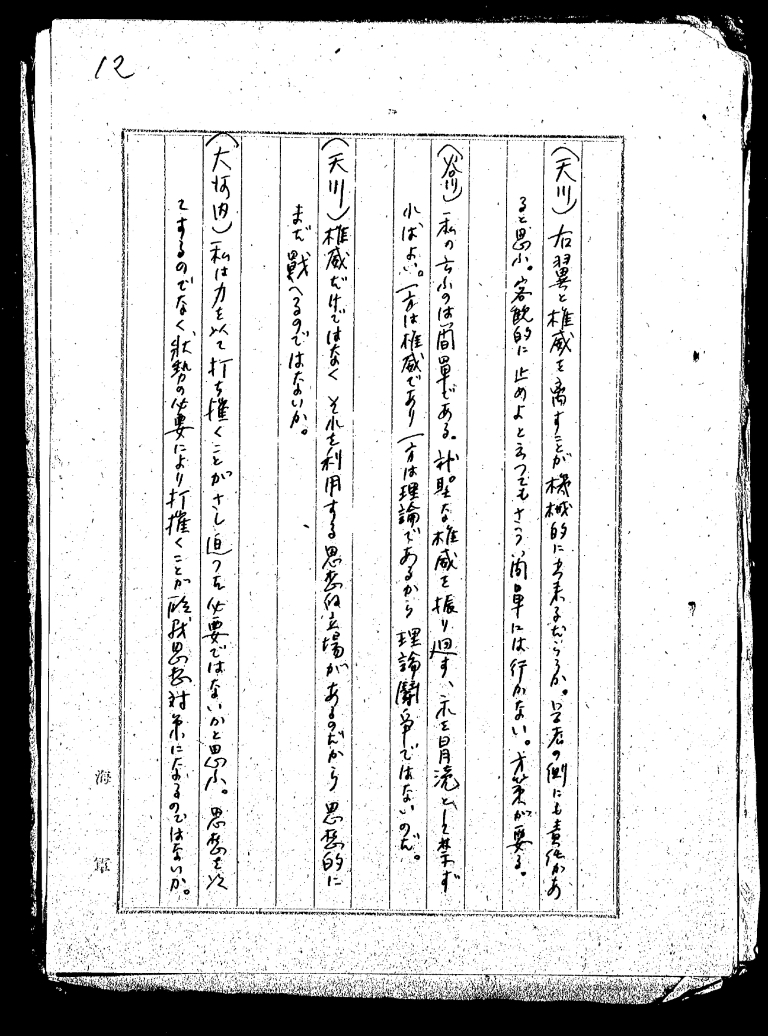 12
(天川) 右翼と権威を離すことが機械的に出来るだらうか。の側にも責任があ
ると思ふ。客観的に止めよと云つてもさう簡単には行かない。方策が要る。
(谷川) 私の云ふのは簡単である。神聖な権威を振り廻す、之を冒涜として禁ず
ればよい。一方は権威であり一方は理論であるから理論闘争ではないのだ。
(天川) 権威だけではなくそれを利用する思想的立場があるのだから思想的に
まだ戦へるのではないか。
(大河内) 私は力を以て打ち摧くことがさし迫つた必要ではないかと思ふ。思想を以
てするのでなく、状勢の必要により打摧くことが思想対策になるのではないか。
海軍